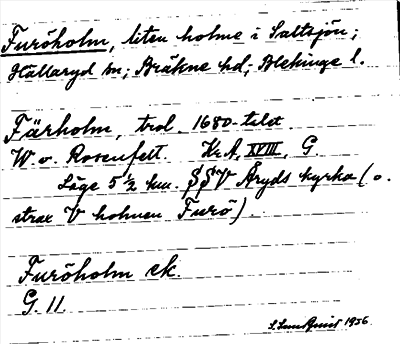 Furöholm, liten holme i Saltsjön;
Hällaryd sn; Bräkne hd; Blekinge l.
Färholm, trol. 1680-talet
W. v. Rosenfelt. Kr A, XVIII, G
Läge 5 1/2 km. SSV Åryds kyrka (o.
strax V holmen Furö).
Furöholm ek.
G. 11.
S. Lundquist 1956